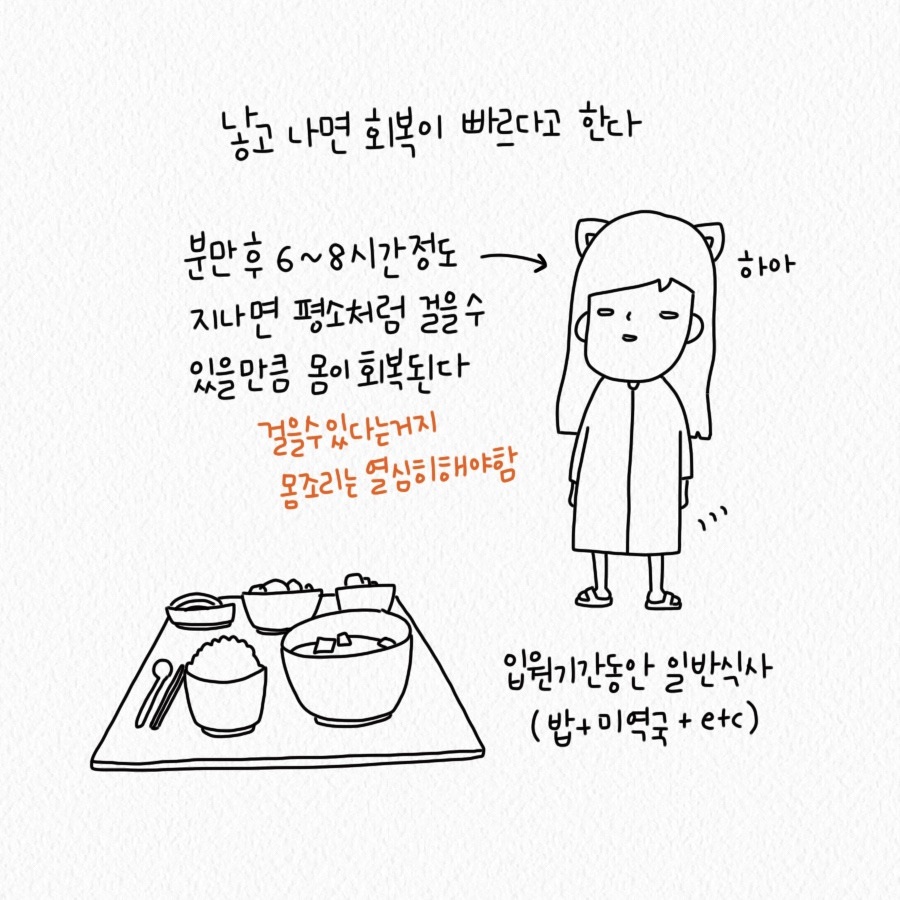 낳고 나면 회복이 빠르다고 한다
분만 후 6~8시간정도
지나면 평소처럼 걸을수
있을만큼 몸이 회복된다
하아
걸을수있다는거지
몸조리는 열심히해야함
입원기간동안 일반식사
(밥+미역국+etc)